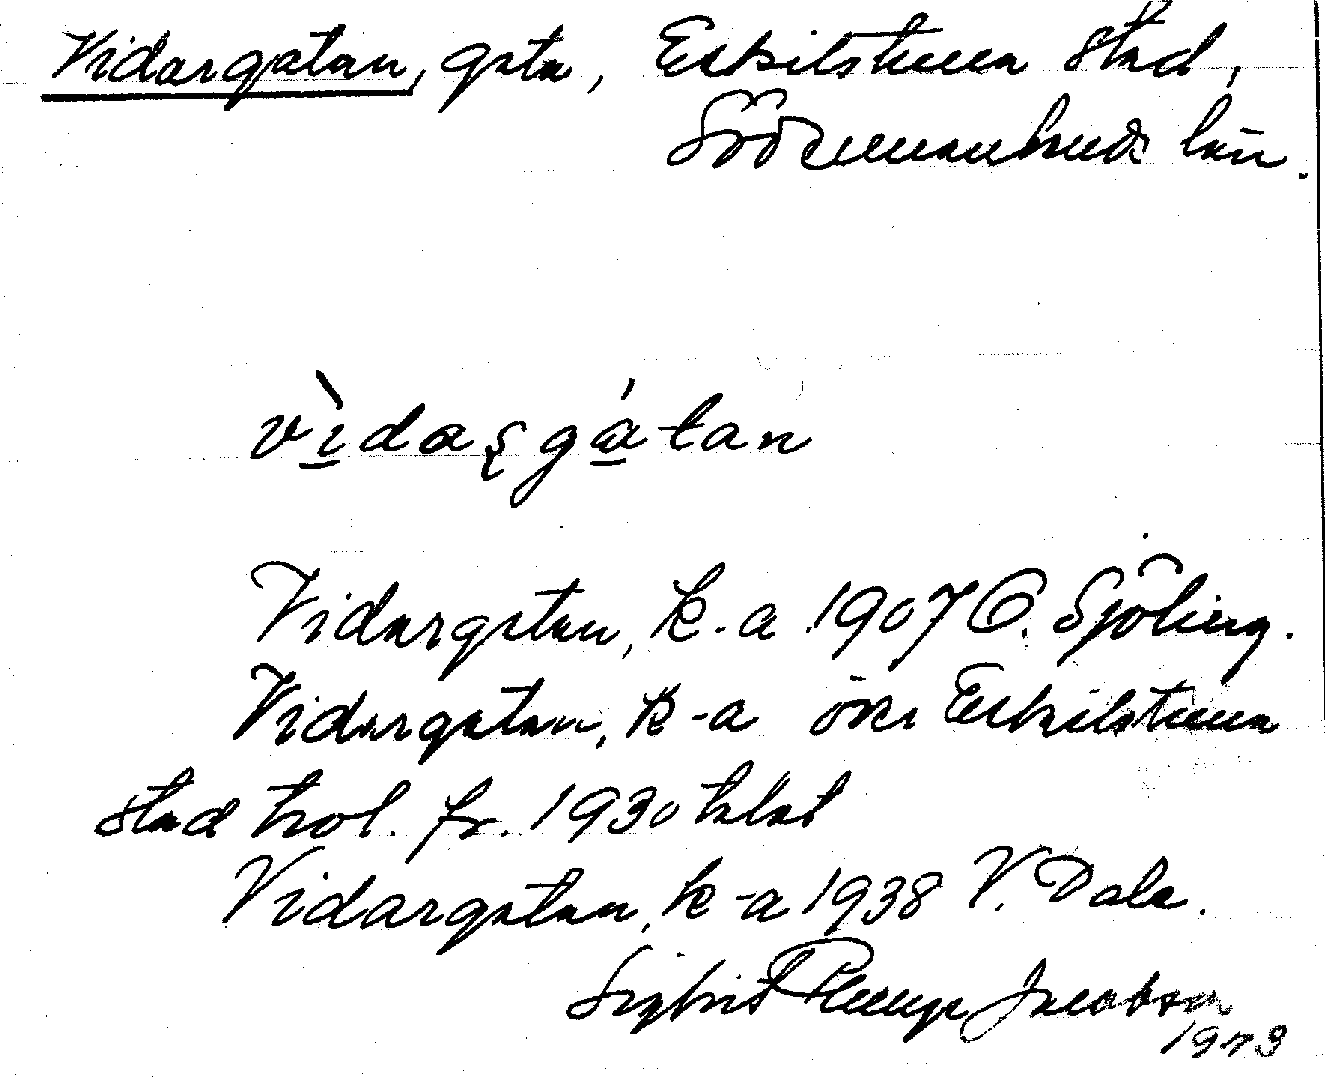 Vidargatan, gata, Eskilstuna stad,
Södermanlands län.
vìdaꞩgátan
Vidargatan, k-a 1907 C. Sjöling.
Vidargatan, k-a över Eskilstuna
stad trol. fr. 1930 talet
Vidargatan, k-a 1938 V. Dale.
Sigfrid Jacobson
1973